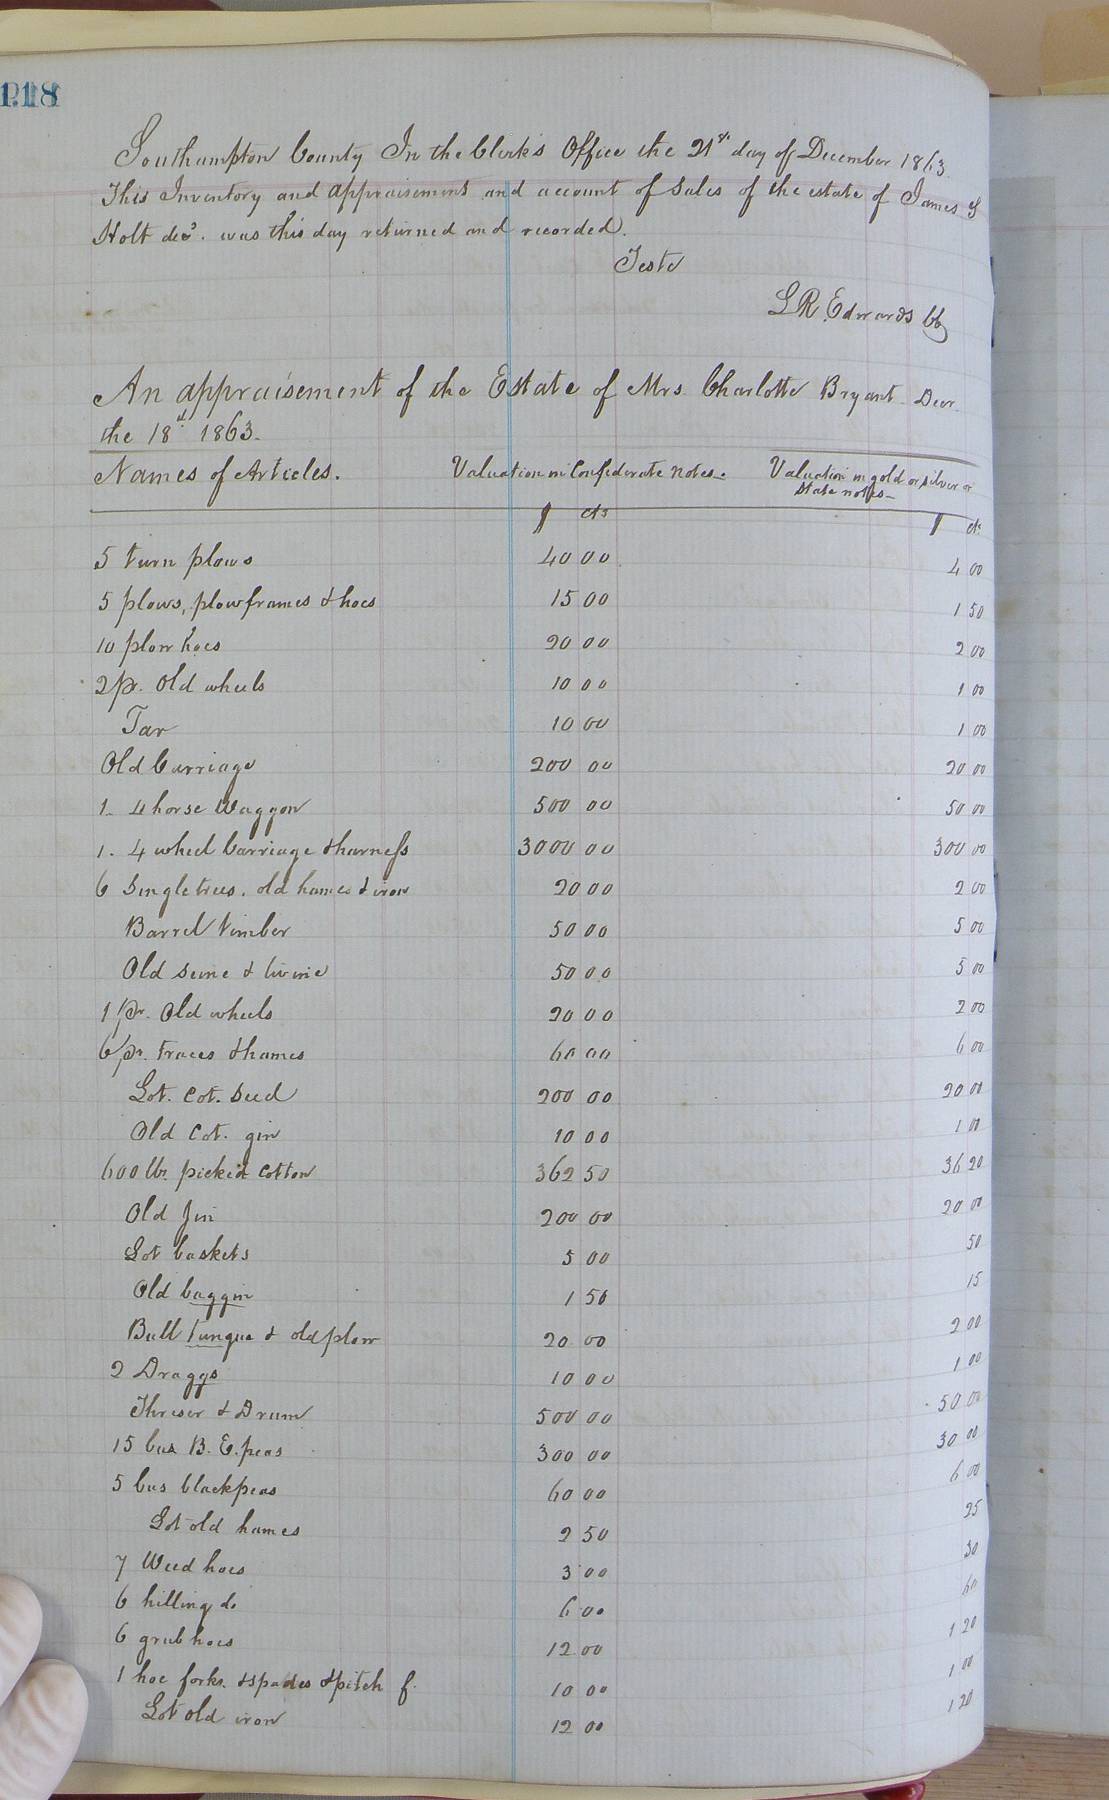 118
Southampton County In the Clerk's Office the 21st day of December 1863.
This Inventory and appraisement and account of Sales of the estate of James S
Holt decd. was this day returned and recorded.
Teste
L R Edwards CC
An appraisement of the Estate of Mrs. Charlotte Bryant Decr.
the 18th 1863.
Names of Articles. Valuation in Confederate notes Valuation in gold or silver or
State notes
$ cts $ cts
5 turn plows 40 00 4 00
5 plows, plowframes & hoes 15 00 1 50
10 plow hoes 20 00 2 00
2 pr. Old wheels 10 00 1 00
Tar 10 00 1 00
Old Carriage 200 00 20 00
1. 4 horse Waggon 500 00 50 00
1. 4 wheel Carriage & harness 3000 00 300 00
6 Singletrees. old hames & iron 20 00 2 00
Barrel timber 50 00 5 00
Old seine & twine 50 00 5 00
1 pr. Old wheels 20 00 2 00
6 pr. traces & hames 60 00 6 00
Lot. Cot. Seed 200 00 20 00
Old Cot. gin 10 00 1 00
600 lbs. picked Cotton 362 50 36 20
Old Jin 200 00 20 00
Lot baskets 5 00 50
Old baggin 1 50 15
Bull tungue & old plow 20 00 2 00
2 Draggs 10 00 1 00
Threser & Drum 500 00 50 00
15 bus B. E. peas 300 00 30 00
5 bus blackpeas 60 00 6 00
Lot old hames 2 50 25
7 Weed hoes 3 00 30
6 hilling do 6 00 60
6 grub hoes 12 00 1 20
1 hoe forks. & spades & pitch f. 10 00 1 00
Lot old iron 12 00 1 20